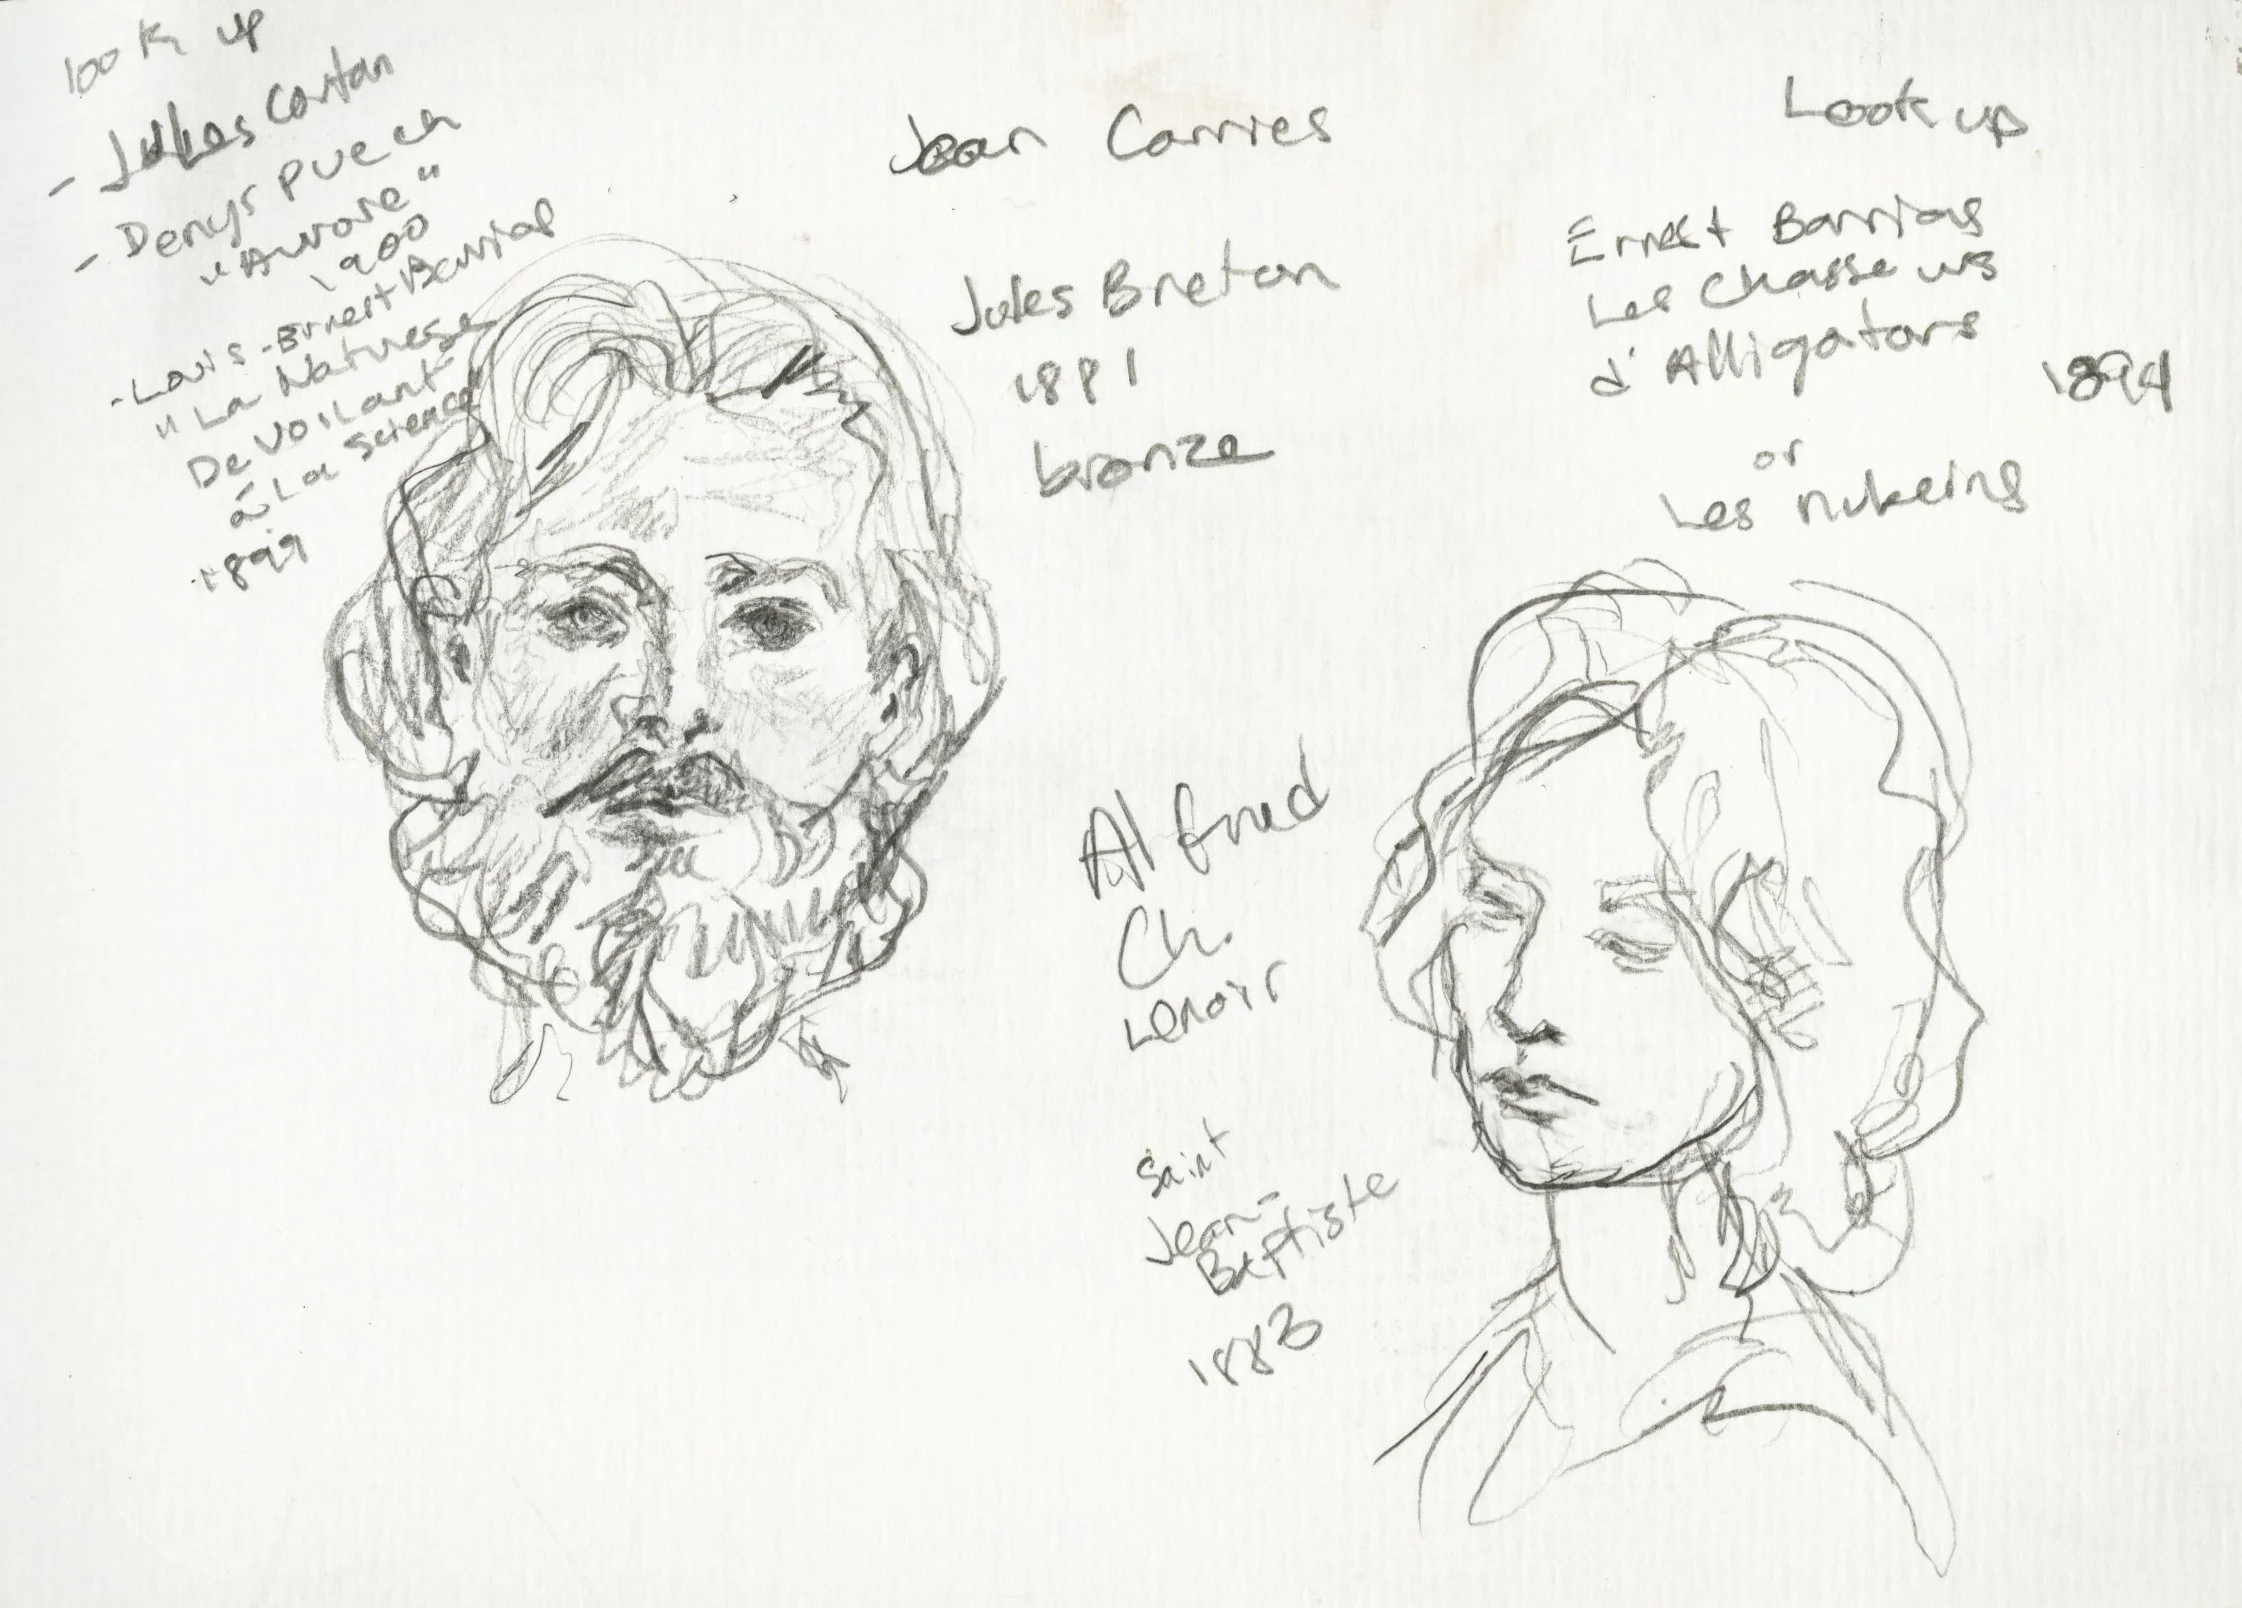 look up
- Jules Coutan
- Denys Puech
"Aurore"
1900
- Louis-Ernest Barrias
"La Nature se
Dévoilant
à La Science
1899
Jean Carries
Jules Breton
1881
bronze
Look up
Ernest Barrias
Les Chasseurs
d'Alligators
1894
or
Les nubeins
Alfred
Ch.
Lenoir
Saint
Jean-
Baptiste
1883